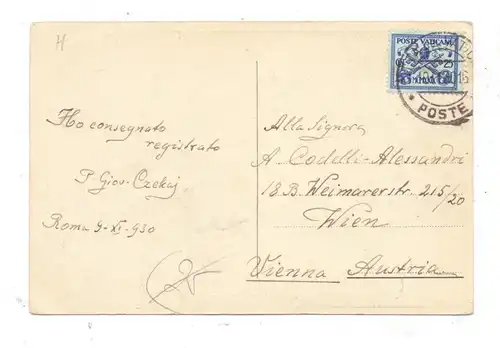 H
POSTE VATICANE
25
POSTE
Ho consegnato
registrato
P. Giov. Czekaj
Roma 9-XI-930
Alla Signora
A. Codelli-Alessandri
18. B. Weimarerstr. 215/20
Wien
Vienna Austria